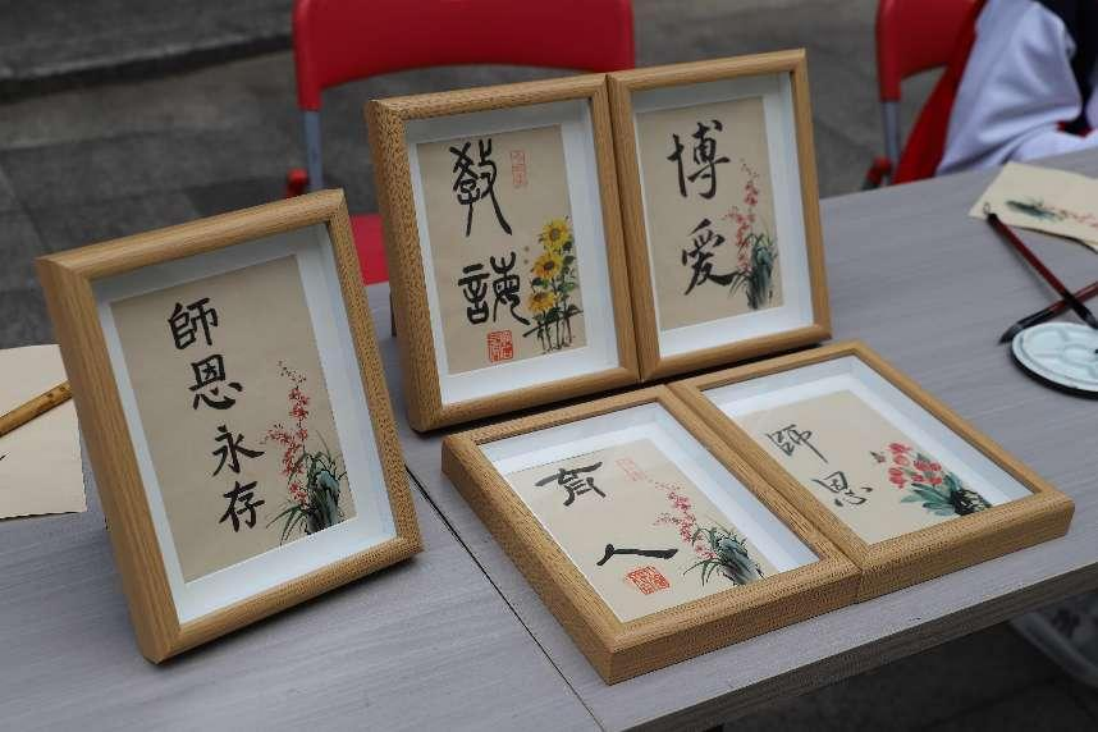 師恩永存
教誨
博愛
育人
師恩